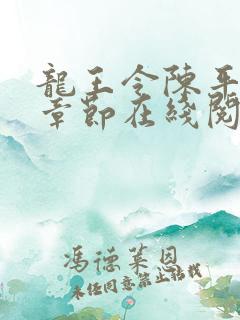 龍王令陳平
章節在綫閱
馮德萊恩
未經同意禁止轉載